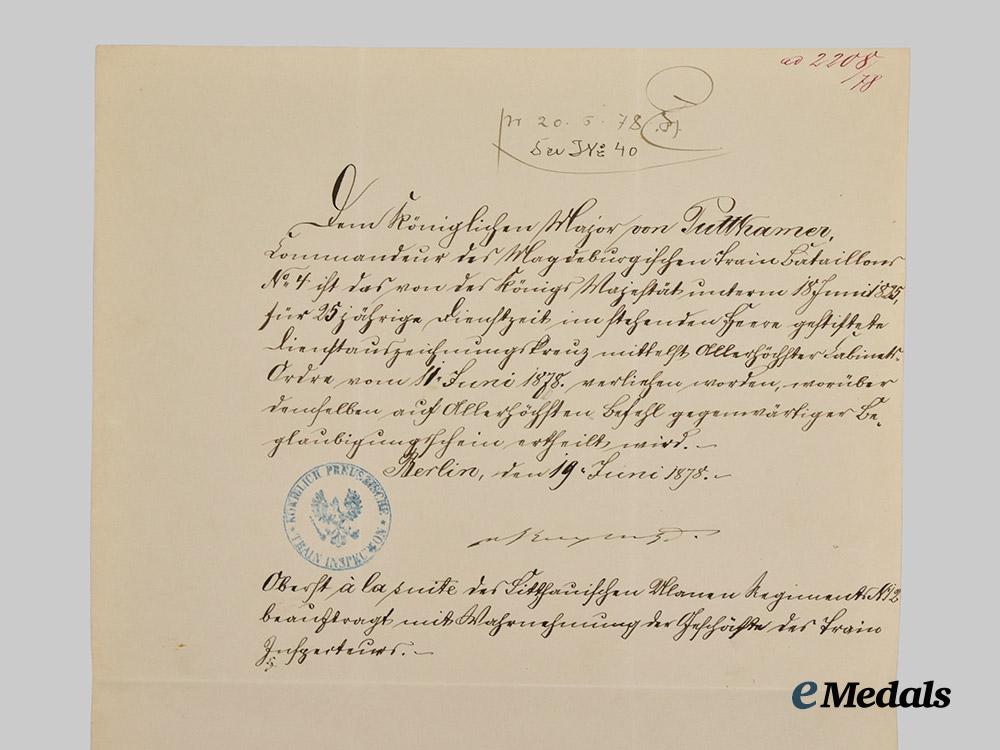 ad 2208/78
pr 20. 6. 78
Sec I No 40
Dem Königlichen Major von Puttkamer,
Commandeur des Magdeburgischen Train Bataillons
No. 4 ist das von des Königs Majestät unterm 18 Juni 1825,
für 25 jährige Dienstzeit im stehenden Heere gestiftete
Dienstauszeichnungskreuz mittelst Allerhöchster Cabinets-
Ordre vom 11. Juni 1878. verliehen worden, worüber
demselben auf Allerhöchsten Befehl gegenwärtiger Be-
glaubigungsschein ertheilt wird.
Berlin, den 19. Juni 1878.
KÖNIGLICH PREUSSISCHE
TRAIN INSPECTION
Oberst à la suite des Litthauischen Ulanen Regiments No 12
beauftragt mit Wahrnehmung der Geschäfte des Train
Inspecteurs.
eMedals